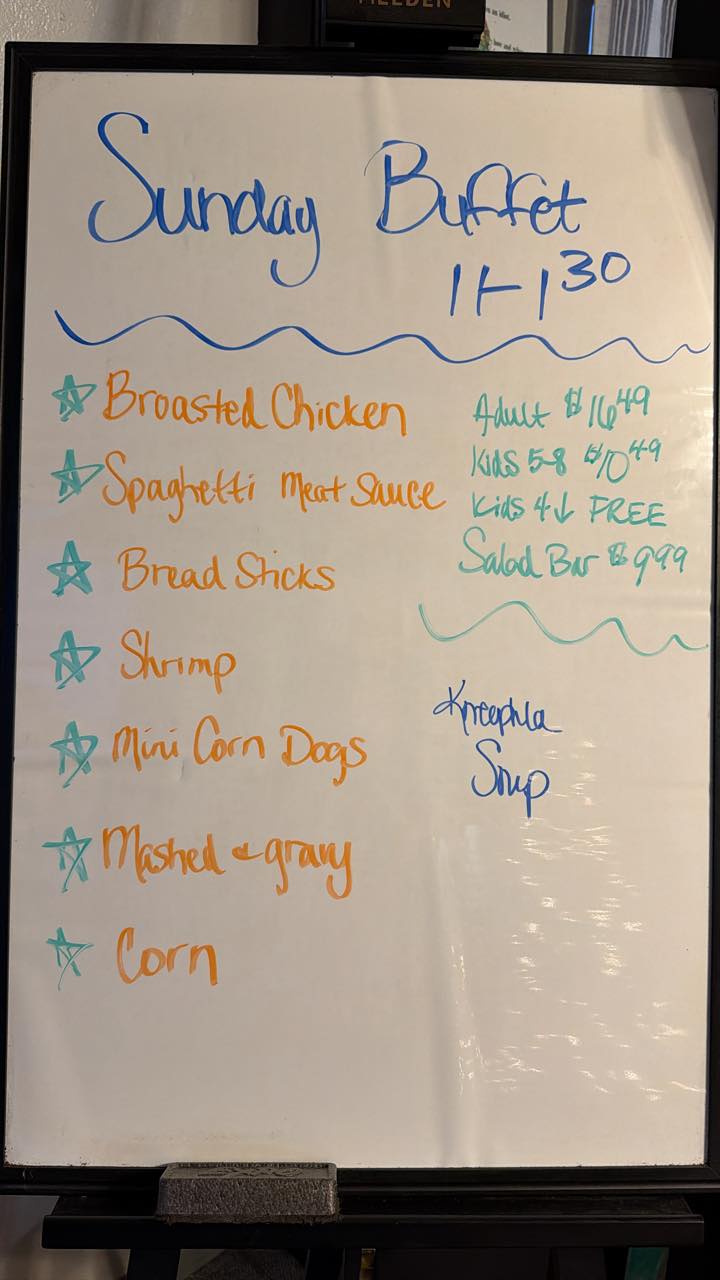 Sunday Buffet
11-1 30
Broasted Chicken
Spaghetti Meat Sauce
Bread Sticks
Shrimp
Mini Corn Dogs
Mashed & gravy
Corn
Adult $16 49
Kids 5-8 $10 49
Kids 4↓ FREE
Salad Bar $9 99
Knreephla
Soup